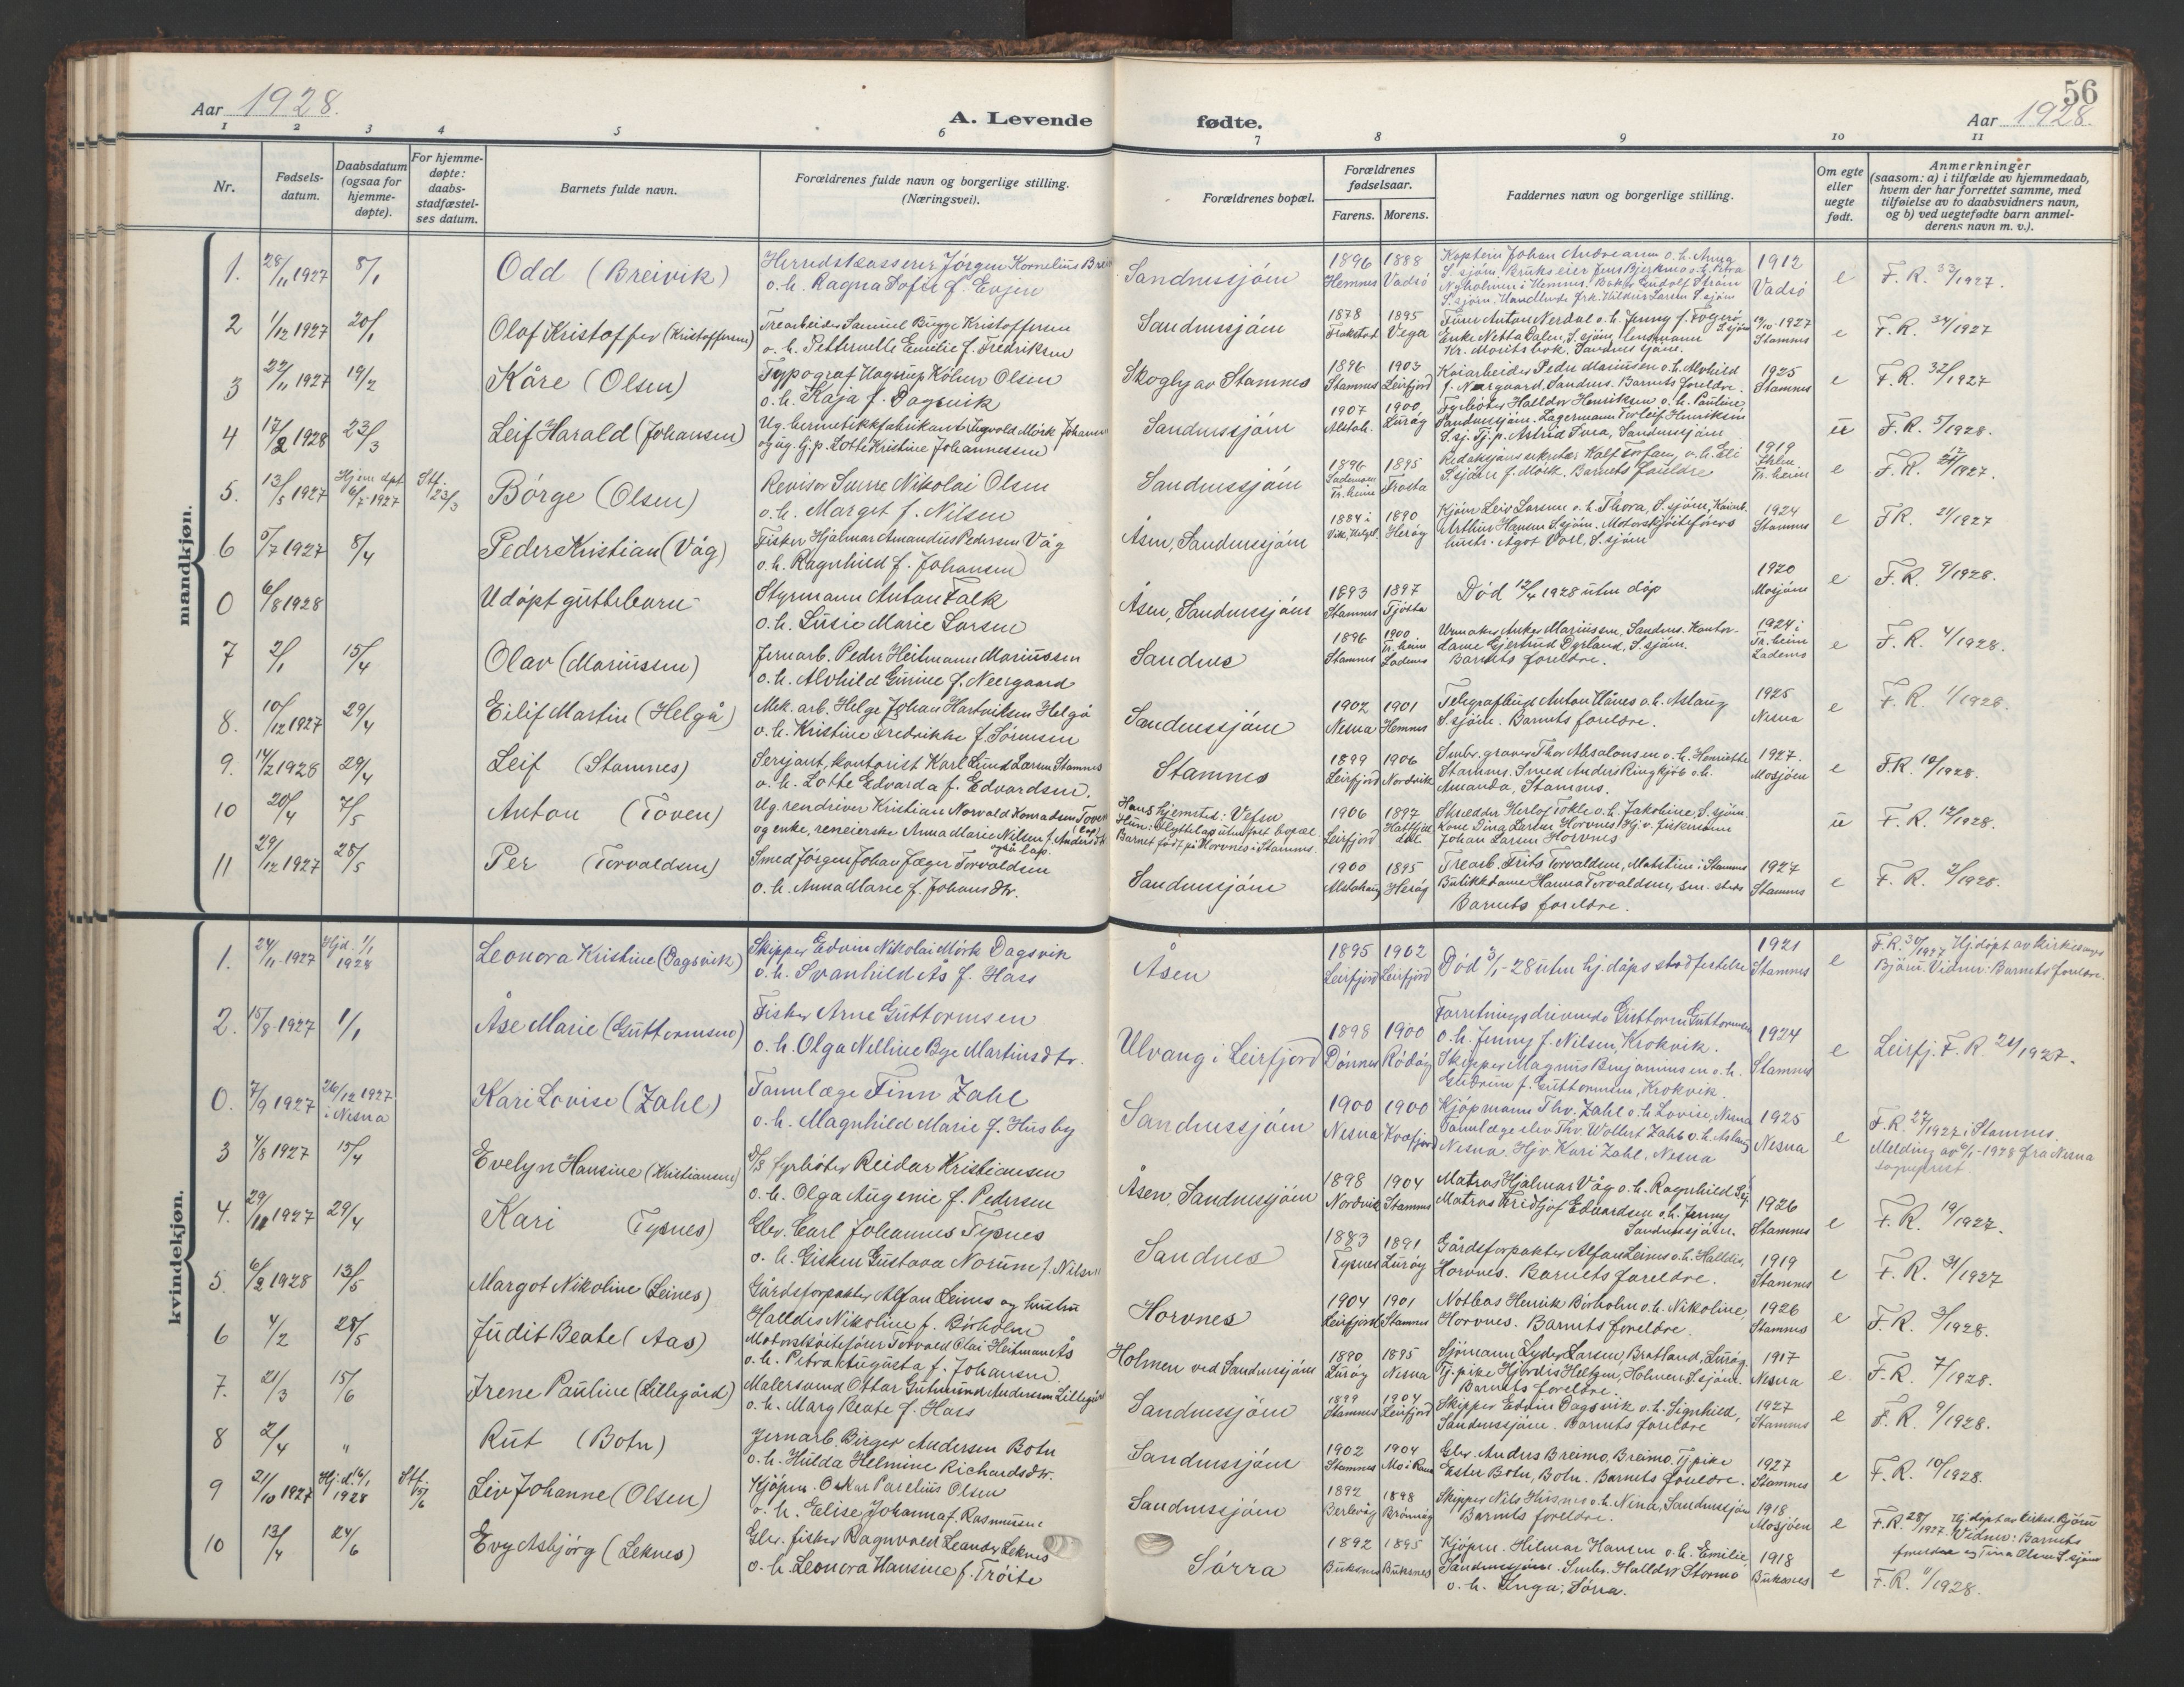 Aar 1928.
A. Levende
fødte.
56
Aar 1928.
1 2 3 4 5 6 7 8 9 10 11
Nr.
Fødsels-
datum.
Daabsdatum
(ogsaa for
hjemme-
døpte).
For hjemme-
døpte:
daabs-
stadfæstel-
ses datum.
Barnets fulde navn.
Forældrenes fulde navn og borgerlige stilling.
(Næringsvei).
Forældrenes bopæl.
Forældrenes
fødselsaar.
Farens. Morens.
Faddernes navn og borgerlige stilling.
Om egte
eller
uegte
født.
Anmerkninger
(saasom: a) i tilfælde av hjemmedaab,
hvem der har forrettet samme, med
tilføielse av to daabsvidners navn,
og b) ved uegtefødte barn anmel-
derens navn m. v.).
mandkjøn.
1. 28/11 1927 8/1 Odd (Breivik)
Herredskasserer Jörgen Kornelius
o.h. Ragna Sofie f. Evjen
Sandnessjöen 1896 Hemnes 1888 Vadsö
1912 Vadsö e F. R. 33/1927.
2 1/12 1927 20/1 Olaf Kristoffer (Kristoffersen)
Trearbeider Samuel Bugge Kristoffersen
o. h. Petternelle Emilie f. Fredriksen
Sandnessjöen 1878 1895 Vega
Stamnes e F. R. 34/1927
3 22/11 1927 19/2 Kåre (Olsen)
Typograf Hagerup Olsen
o. h. Kaja f. Dagsvik
Skogly av Stamnes 1896 Stamnes 1903 Leirfjord
Kaiarbeider Peder Mariussen o.h. Alvhild
f. Neergaard, Sandnes. Barnets foreldre.
1925 Stamnes e F. R. 32/1927
4 17/2 1928 23/3 Leif Harald (Johansen)
Ug. hermetikkfabrikant Mörk
og ug. tj.p. Lotte Kristine Johannessen
Sandnessjöen 1907 Alstah. 1900 Luröy
Fyrböter Halldor Henriksen o. h. Pauline
Sandnessjöen. Lagermann Torleif Henriksen
S.sj. Tj. p. Astrid Svea, Sandnessjöen
u F. R. 5/1928.
5. 13/5 1927 Hjemdpt 6/7-1927 Stf. 23/3 Börge (Olsen)
Revisor Sverre Nikolai Olsen
o. h. Margot f. Nilsen
Sandnessjöen 1896 Lademoen Tr.heim 1895 Frosta
S.sjöen f. Mörk. Barnets foreldre
1919 Tr.heim e
6 5/7 1927 8/4 Peder Kristian (Våg)
Fisker Hjalmar Amandus Pedersen Våg
o. h. Ragnhild f. Johansen
Åsen, Sandnessjöen 1884 i Vik, Helgel. 1890 Heröy
Leiv Larsen o. h. Thora, S.sjöen,
Arthur Hansen S.sjöen. Motorskjöiteförers
hustr. Ågot Voll, S.sjöen
1924 Stamnes e FR. 24/1927
0 6/8 1928 Udöpt guttebarn
Styrmann Anton Falk
o. h. Lusie Marie Larsen
Åsen, Sandnessjöen 1893 Stamnes 1897 Tjötta
Död 12/4 1928 uten dåp
1920 Mosjöen e F. R. 9/1928.
7 2/1 15/4 Olav (Mariussen)
Jernarb. Peder Heitmann Mariussen
o. h. Alvhild Gurine f. Neergaard
Sandnes 1896 Stamnes 1900 Tr.heim Lademo
Urmaker Anker Mariussen, Sandnes. Kontor-
dame Gjertrud Dyrland, S.sjöen.
Barnets foreldre.
1924 i Tr.heim Lademo e F. R. 4/1928.
8. 10/12 1927 29/4 Eilif Martin (Helgå)
Mek. arb. Helge Johan Hartviksen Helgå
o. h. Kristine Fredrikke f. Sörensen
Sandnessjöen 1902 Nesna 1901 Hemnes
Telegrafbud Anton Hånes o. h. Aslaug
S.sjöen. Barnets foreldre.
1925 Nesna e F. R. 1/1928.
9. 14/2 1928 29/4 Leif (Stamnes)
Serjant, kontorist Karl Lund Larsen Stamnes
o. h. Lotte Edvarda f. Edvardsen.
Stamnes 1899 Leirfjord 1906 Nordvik
Smbr. graver Thor Absalonsen o. h. Henriette
Stamnes. Smed Anders Ringkjöb o.h.
Amanda, Stamnes.
1927. Mosjöen e F.R. 10/1928.
10 20/4 7/5 Anton (Toven)
Ug. rendriver Kristian Norvald Konradsen Toven
og enke, reneierske Anna Marie Nilsen f. Andersdtr.
også lap.
Hans hjemsted: Vefsn
Hun: Flyttelap uten fast bopæl.
Barnet født på Horvnes i Stamnes.
1906 Leirfjord 1897 Hatfjeldal
Skredder Herlof Tokle o. h. Jakobine, S.sjöen
Kone Dina Larsen Horvnes Hj. v. fiskermann
Johan Larsen Horvnes
u F. R. 12/1928.
11 29/12 1927 28/5 Per (Torvaldsen)
Smed Jörgen Johan Jæger Torvaldsen
o. h. Anna Marie f. Johansdtr.
Sandnessjöen 1900 Alstahaug 1895 Heröy
Trearb. Frits Torvaldsen, i Stamnes
Butikkdame Hanna Torvaldsen, sm. steds
Barnets foreldre.
1927 Stamnes e F. R. 2/1928.
kvindekjøn.
1. 24/11-1927 Hjd. 1/1 1928 Leonora Kristine (Dagsvik)
Skipper Edvin Nikolai Mörk Dagsvik
o. h. Svanhild Ås f. Hass
Åsen 1895 Leirfjord 1902 Leirfjord
Död 3/1-28 uten hj.dåps stadfestelse
1921 Stamnes e F.R. 30/1927 Hj.döpt av kirkesanger
Björu. Vidner: Barnets foreldre.
2. 15/8-1927 1/1 Åse Marie (Guttormsen)
Fisker Arne Guttormsen
o. h. Olga Nelline Bye Martinsdtr.
Ulvang i Leirfjord 1898 Dönnes 1900 Rödöy
Forretningsdrivende Guttorm Guttormsen
o. h. Jenny f. Nilsen, Krokvik.
Skipper Magnus Benjaminsen o. h.
Gudrun f. Guttormsen, Krokvik.
1924 Stamnes e Leirfj. F. R. 24/1927.
0. 7/9 1927 26/12 1927 i Nesna Kari Lovise (Zahl)
Tannlæge Finn Zahl
o. h. Magnhild Marie f. Husby
Sandnessjöen 1900 Nesna 1900 Kvæfjord
Kjöpmann Thv. Zahl o. h. Lovise, Nesna
Tannlæge elev Thv. Wollert Zahl o. h. Aslaug
Nesna. Hjv Kari Zahl, Nesna
1925 Nesna e F.R. 27/1927 i Stamnes.
Melding av 6/1-1928 fra Nesna
sogneprest.
3 4/8 1927 15/4 Evelyn Hansine (Kristiansen)
D/S fyrböter Reidar Kristiansen
o. h. Olga Augenie f. Pedersen
Åsen, Sandnessjöen 1898 Nordvik 1904 Stamnes
Matros Hjalmar Våg o. h. Ragnhild
Matros Fridtjof Edvardsen o. h. Jenny
Sandnessjöen.
1926 Stamnes e F. R. 19/1927.
4. 29/10 1927 29/4 Kari (Tysnes)
Gbr. Carl Johannes Tysnes
o. h. Gisken Gustava Norum f. Nilsen
Sandnes 1883 Tysnes 1891 Luröy
Gårdsforpakter Alfan Leines o. h. Halldis,
Horvnes. Barnets foreldre.
1919 Stamnes e F. R. 31/1927
5. 6/2 1928 13/5 Margot Nikoline (Leines)
Gårdsforpakter Alfan Leines og hustru
Halldis Nikoline f. Börholm
Horvnes 1904 Leirfjord 1901 Stamnes
Notbas Henrik Börholm o. h. Nikoline,
Horvnes. Barnets foreldre.
1926 Stamnes e F. R. 3/1928.
6 4/2 28/5 Judit Beate (Aas)
Motorsköiteförer Torvald Olai Heitman Ås
o. h. Petra Augusta f. Johansen.
Holmen ved Sandnessjöen 1890 Luröy 1895 Nesna
Sjömann Lyder Larsen, Bratland, Luröy.
Tj. pike Hjördis Heltzen, Holmen S.sjöen.
Barnets foreldre.
1917 Nesna e F. R. 7/1928.
7. 21/3 15/6 Irene Pauline (Lillegård)
Malersvend Ottar Gutmund Andersen Lillegård
o. h. Mary Beate f. Hass
Sandnessjöen 1899 Stamnes 1904 Leirfjord
Skipper Edvin Dagsvik o. h. Signhild,
Sandnessjöen. Barnets foreldre
1927 Stamnes e F. R. 9/1928.
8 2/4 " Rut (Botn)
Jernarb. Birger Andersen Botn
o. h. Hulda Helmine Richardsdtr.
Sandnessjöen 1902 Stamnes 1904 Mo i Rana
Gbr. Anders Breimo, Breimo, Tj. pike
Ester Botn, Botn. Barnets foreldre.
1927 Stamnes e F. R. 10/1928.
9 21/10 1927 Hj.d. 16/1 1928 Stf. 15/6 Liv Johanne (Olsen)
Kjöpm. Oskar Parelius Olsen
o. h. Elise Johanna f. Rasmussen
Sandnessjöen 1892 Berlevåg 1898 Brönnöy
Skipper Nils Husnes o. h. Nina, Sandnessjöen
Barnets foreldre.
1918 Mosjöen e F.R. 28/1927. Hj.döpt av kirkes. Björu
Vidner: Barnets
foreldre og Tina Olsen S.sjöen
10 13/4 24/6 Evy Asbjörg (Leknes)
Gbr. fisker Ragnvald Leander Leknes
o. h. Leonora Hansine f. Tröite
Sörra 1892 Buksnes 1895 Buksnes
Kjöpm. Hilmar Hansen o. h. Emilie,
Sandnessjöen. Smbr. Halldor Stormo
o. h. Inga, Sörra.
1918 Buksnes e F. R. 11/1928.